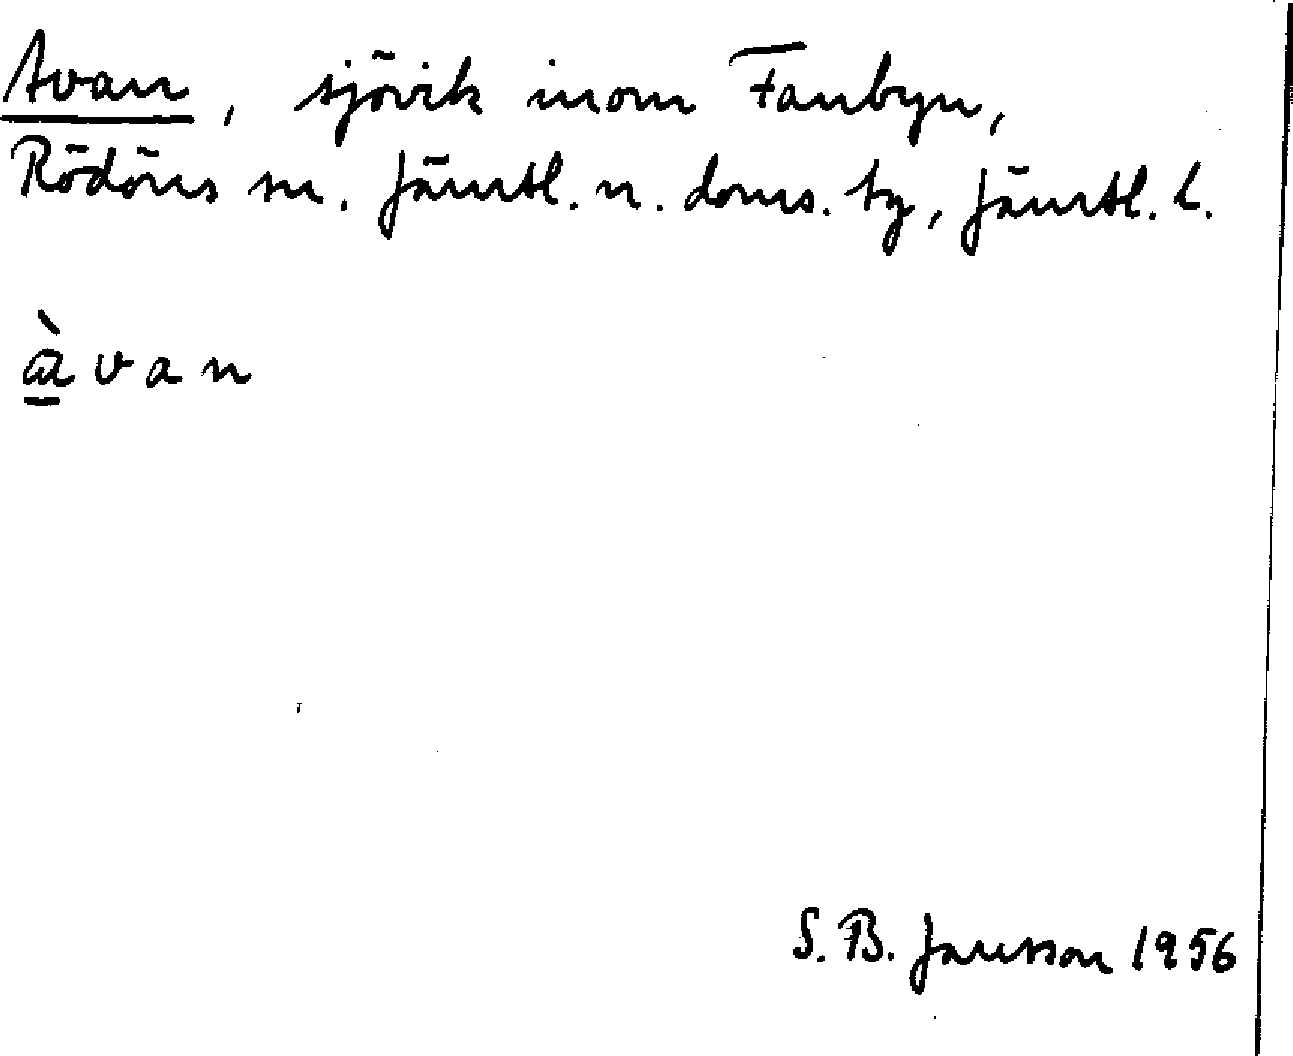 Avan, sjövik inom Fanbyn,
Rödöns sn. Jämtl. n. doms. tg, Jämtl. l.
àvan
S. B. Jansson 1956